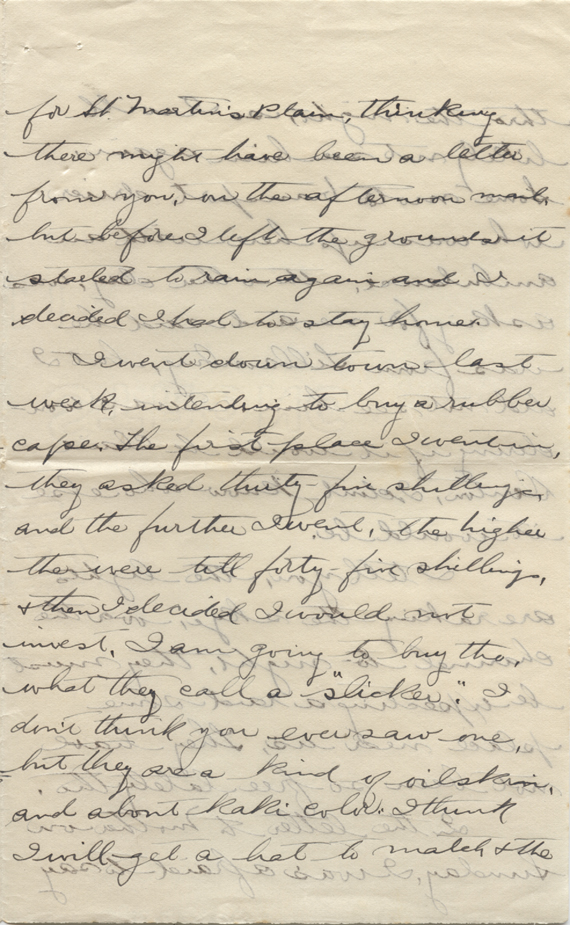 for St Martins Plain, thinking
there might have been a letter
from you, on the afternoon mail,
but before I left the grounds it
started to rain again and I
decided I had to stay home.
I went down town last
week, intending to buy a rubber
cape. The first place I went in,
they asked thirty-five shillings,
and the further I went, the higher
they were till forty-five shillings,
& then I decided I would not
invest. I am going to buy tho,
what they call a "slicker". I
don't think you ever saw one,
but they are a kind of oilskin,
and about kaki color. I think
I will get a hat to match & the